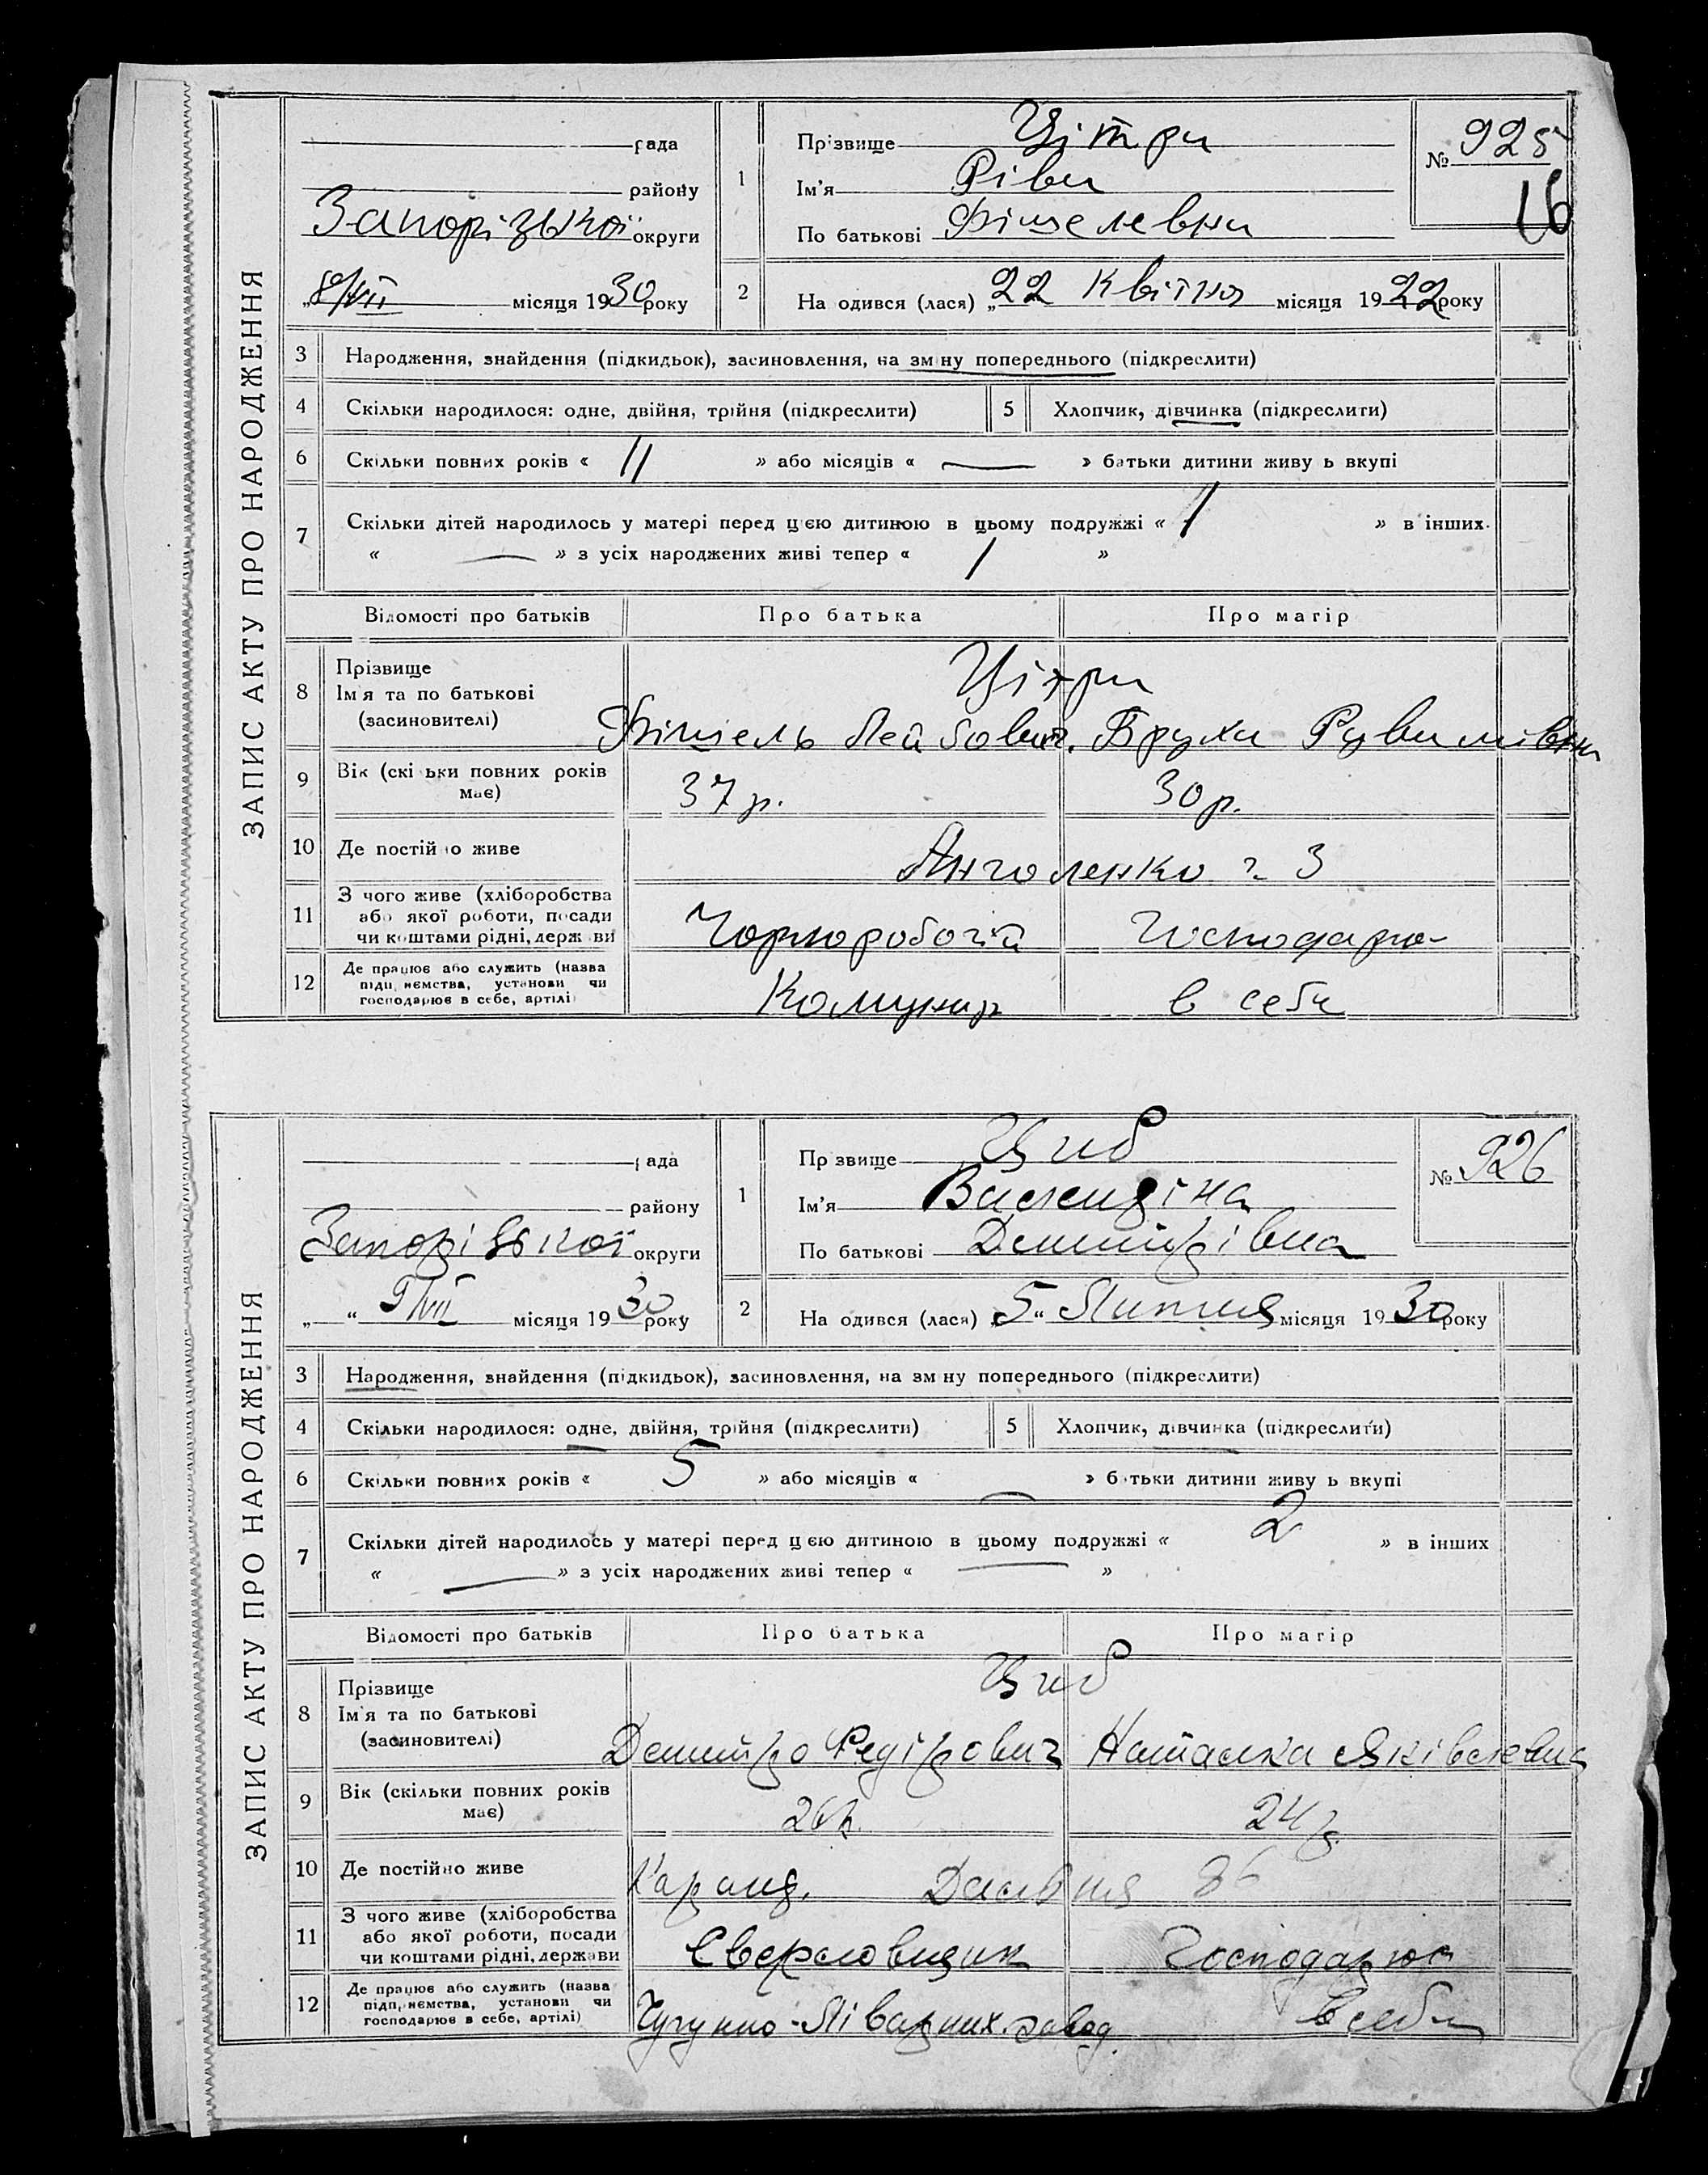 ЗАПИС АКТУ ПРО НАРОДЖЕННЯ
рада
району
Запорізької округи
8/VII місяця 1930 року
1 Прізвище Цітри
Ім'я Ріви
По батькові Фішелевни
№ 925
16
2 На одився (лася) „22 Квітня місяця 1922 року
3 Народження, знайдення (підкидьок), засиновлення, на зміну попереднього (підкреслити)
4 Скільки народилося: одне, двійня, трійня (підкреслити) 5 Хлопчик, дівчинка (підкреслити)
6 Скільки повних років « 11 » або місяців « — » батьки дитини живу ь вкупі
7 Скільки дітей народилось у матері перед цією дитиною в цьому подружжі « 1 » в інших
« — » з усіх народжених живі тепер « 1 »
Відомості про батьків Про батька Про матір
8 Прізвище
Ім'я та по батькові
(засиновителі)
Цітри
Фішель Лейбович. Бруха Рувимівна
9 Вік (скі ьки повних років має) 37 р. 30 р.
10 Де постійно живе Анголенко 3
11 З чого живе (хліборобства або якої роботи, посади чи коштами рідні, держ ви Чорноробочий Господарю-
12 Де працює або служить (назва підп иємства, установи чи господарює в себе, артілі) Комунар в себе
ЗАПИС АКТУ ПРО НАРОДЖЕННЯ
рада
району
Запорізької округи
„ “ 9/VII місяця 1930 року
1 Пр звище Циб
Ім'я Валендіна
По батькові Дмитрівна
№ 926
2 На одився (лася) „5“ Липня місяця 1930 року
3 Народження, знайдення (підкидьок), засиновлення, на зм ну попереднього (підкреслити)
4 Скільки народилося: одне, двійня, трійня (підкреслити) 5 Хлопчик, дівчинка (підкреслити)
6 Скільки повних років « 5 » або місяців « — » б тьки дитини живу ь вкупі
7 Скільки дітей народилось у матері перед цією дитиною в цьому подружжі « 2 » в інших
« — » з усіх народжених живі тепер « — »
Відомості про батьків Про батька Про матір
8 Прізвище
Ім'я та по батькові
(засиновителі)
Циб
Дмитро Федірович Наталка Яківлевна
9 Вік (скільки повних років має) 26 р. 24 р.
10 Де постійно живе 86
11 З чого живе (хліборобства або якої роботи, посади чи коштами рідні, держави Сверловщик Господарює
12 Де працює або служить (назва підп иємства, установи чи господарює в себе, артілі) Чугунно-Ліварних. завод. в себе